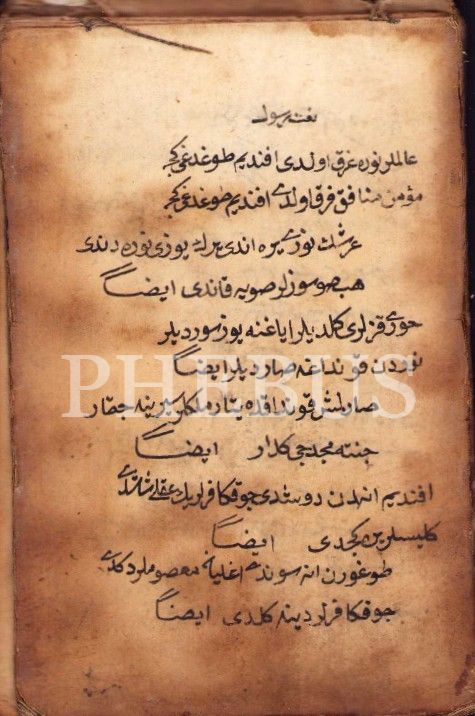 نعت رسول
عالملر نوره غرق اولدی افندیم طوغدغی گجه
مؤمن منافق فرق اولدی افندیم طوغدغی گجه
عرشك نوری یره اندی یرلر یوزی نوره دندی
هب صوسوزلر صویه قاندی ایضاً
حوری قزلری کلدیلر ایاغنه یوز سوردیلر
نوردن قونداغه صاردیلر ایضاً
PHEBUS
صارلمش قونداقده یتار ملکلر سیرینه چقار
جنته مجده جی کلدار ایضاً
افندیم انه‌دن دوشدی چوق کافرلرك عقلی شاشدی
کلیسالرین کچدی ایضاً
طوغورن انه سوندی اغلیان معصوملر دکدی
چوق کافرلر دینه کلدی ایضاً